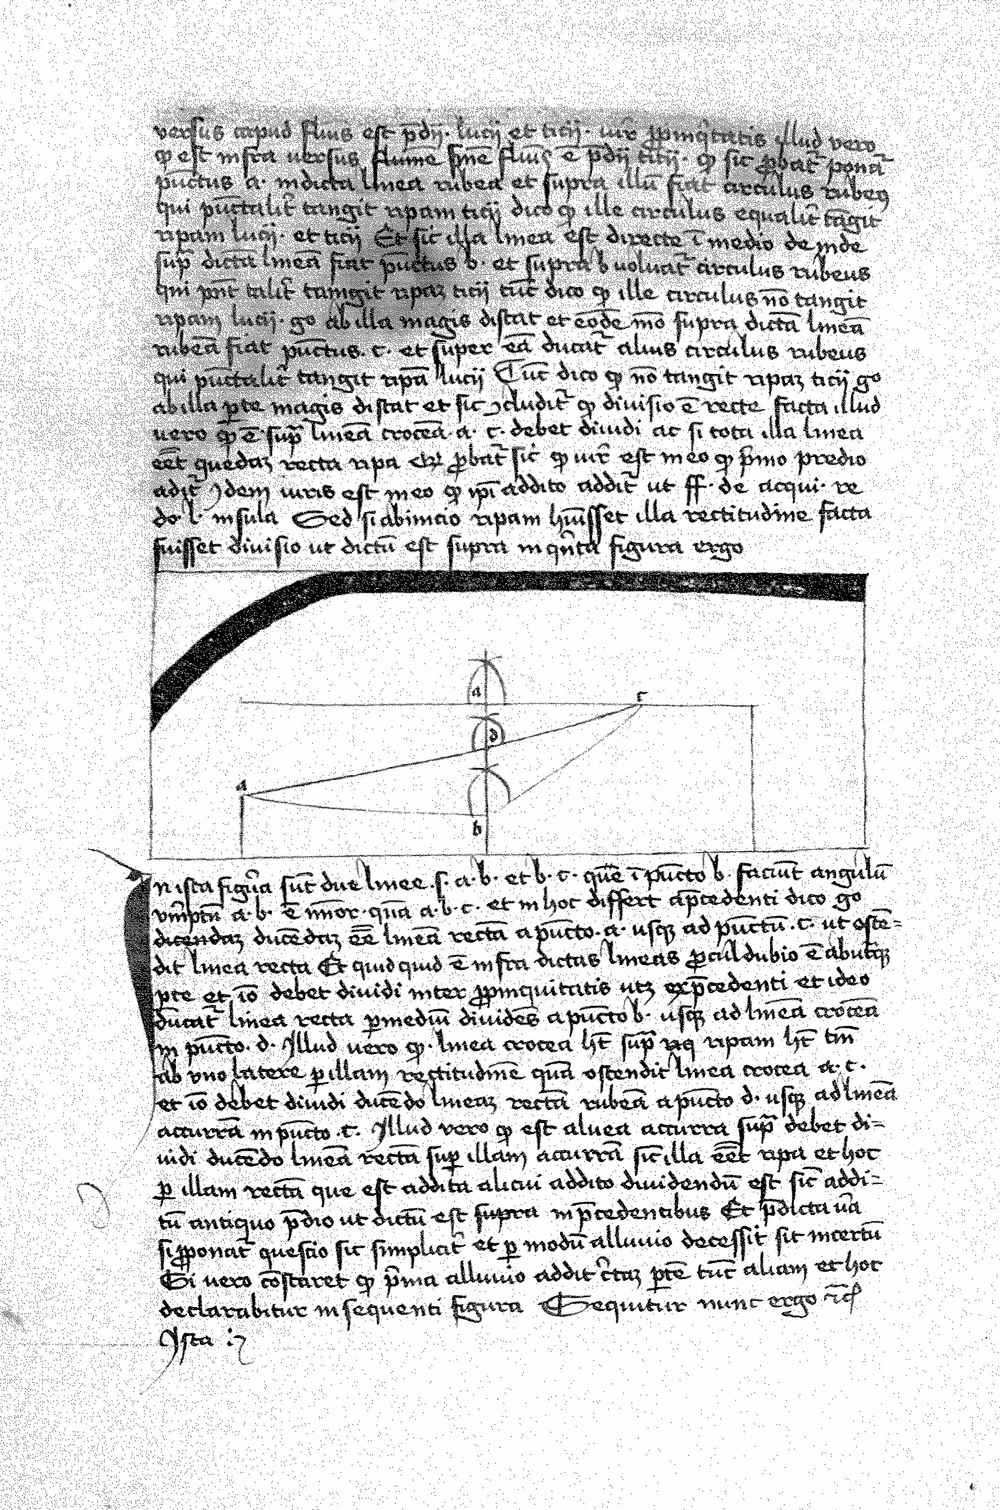 versus capud flüis est p̄dij· lucij et ticij· iur̄ p̱pinq̄tatis illud vero
qp̄ est infra versus flumē sine flūij ē p̄dij titij· qp̄ sic p̱bat̄ ponat̄
pūctus a· in dicta linea rubea et supra illū fiat circulus rubeꝰ
qui pūctalit̄ tangit ripam ticij dico qp̄ ille circulus equalit̄ tāgit
ripam lucij· et ticij Et sic illa linea est directe ī medio deinde
sup̄ dictā lineā fiat pūctus b· et supra b voluat̄ circulus rubeus
qui pn̄t talit̄ tamgit ripaz ticij tūc dico qp̄ ille circulus nō tangit
ripam lucij· go ab illa magis distat et eōde mō supra dictā lineā
rubeā fiat pūctus· c· et super eā ducat̄ alius circulus rubeus
qui pūctalit̄ tangit ripā lucij Tūc dico qp̄ nō tangit ripaz ticij go
ab illa p̱te magis distat et sic ꝯcludit̄ qp̄ diuisio ē recte facta illud
vero qp̄ ē sup̄ lineā croceā a· c· debet diuidi ac si tota illa linea
eēt quedaz recta ripa p̱bat̄ sic qp̄ iur̄ est meo qp̄ p̄mo predio
adit̄ Jdem iuris est meo qp̄ ip̄i addito addit̄ ut ff· de acqui· re
do· l· insula Sed si ab inicio ripam hūisset illa rectitudine facta
fuisset diuisio ut dictū est supra in qn̄ta figura ergo
a
c
d
a
b
Jn ista figura sūt due linee ·s· a·b· et b·c· que ī pūcto b· faciūt angulū
a·b· ē mīor· quā a·b·c· et in hoc differt a p̄cedenti dico go
dicendaz ducēdaz eē lineā rectā a pūcto· a· usqꝫ ad pūctū·c· ut ostē=
dit linea recta Et quid quid ē infra dictas lineas p̱culdubio ē ab utraqꝫ
p̱te et iō debet diuidi inter p̱pinquitatis utꝫ ex p̄cedenti et ideo
ducat̄ linea recta p̱ mediū diuidēs a pūcto b· usqꝫ ad lineā croceā
in pūcto· d· Jllud vero qp̄· linea crocea ht̄ sup̄ ripam ht̄ tm̄
ab vno latere p̱ illam rectitudinē quā ostendit linea crocea a· c·
et iō debet diuidi ducēdo lineaz rectā rubeā a pūcto d· usqꝫ ad lineā
accurrā in pūcto· c· Jllud vero qp̄ est aluea accurra sup̄ debet di=
uidi ducēdo lineā rectā sup̱ illam accurrā sic illa eēt ripa et hoc
p̱ illam rectā que est addita alicui addito diuidendū est sic addi=
tū antiquo p̄dio ut dictū est supra in p̄cedentibus Et p̄dicta ūa
si p̱ponat̄ questio sic simplicit̄ et p̱ modū alluuio decessit sit incertū
Si vero cōstaret qp̄ p̄ma alluuio addit c̄taz p̱tē tūc aliam et hoc
declarabitur in sequenti figura Sequitur nunc ergo
Jsta